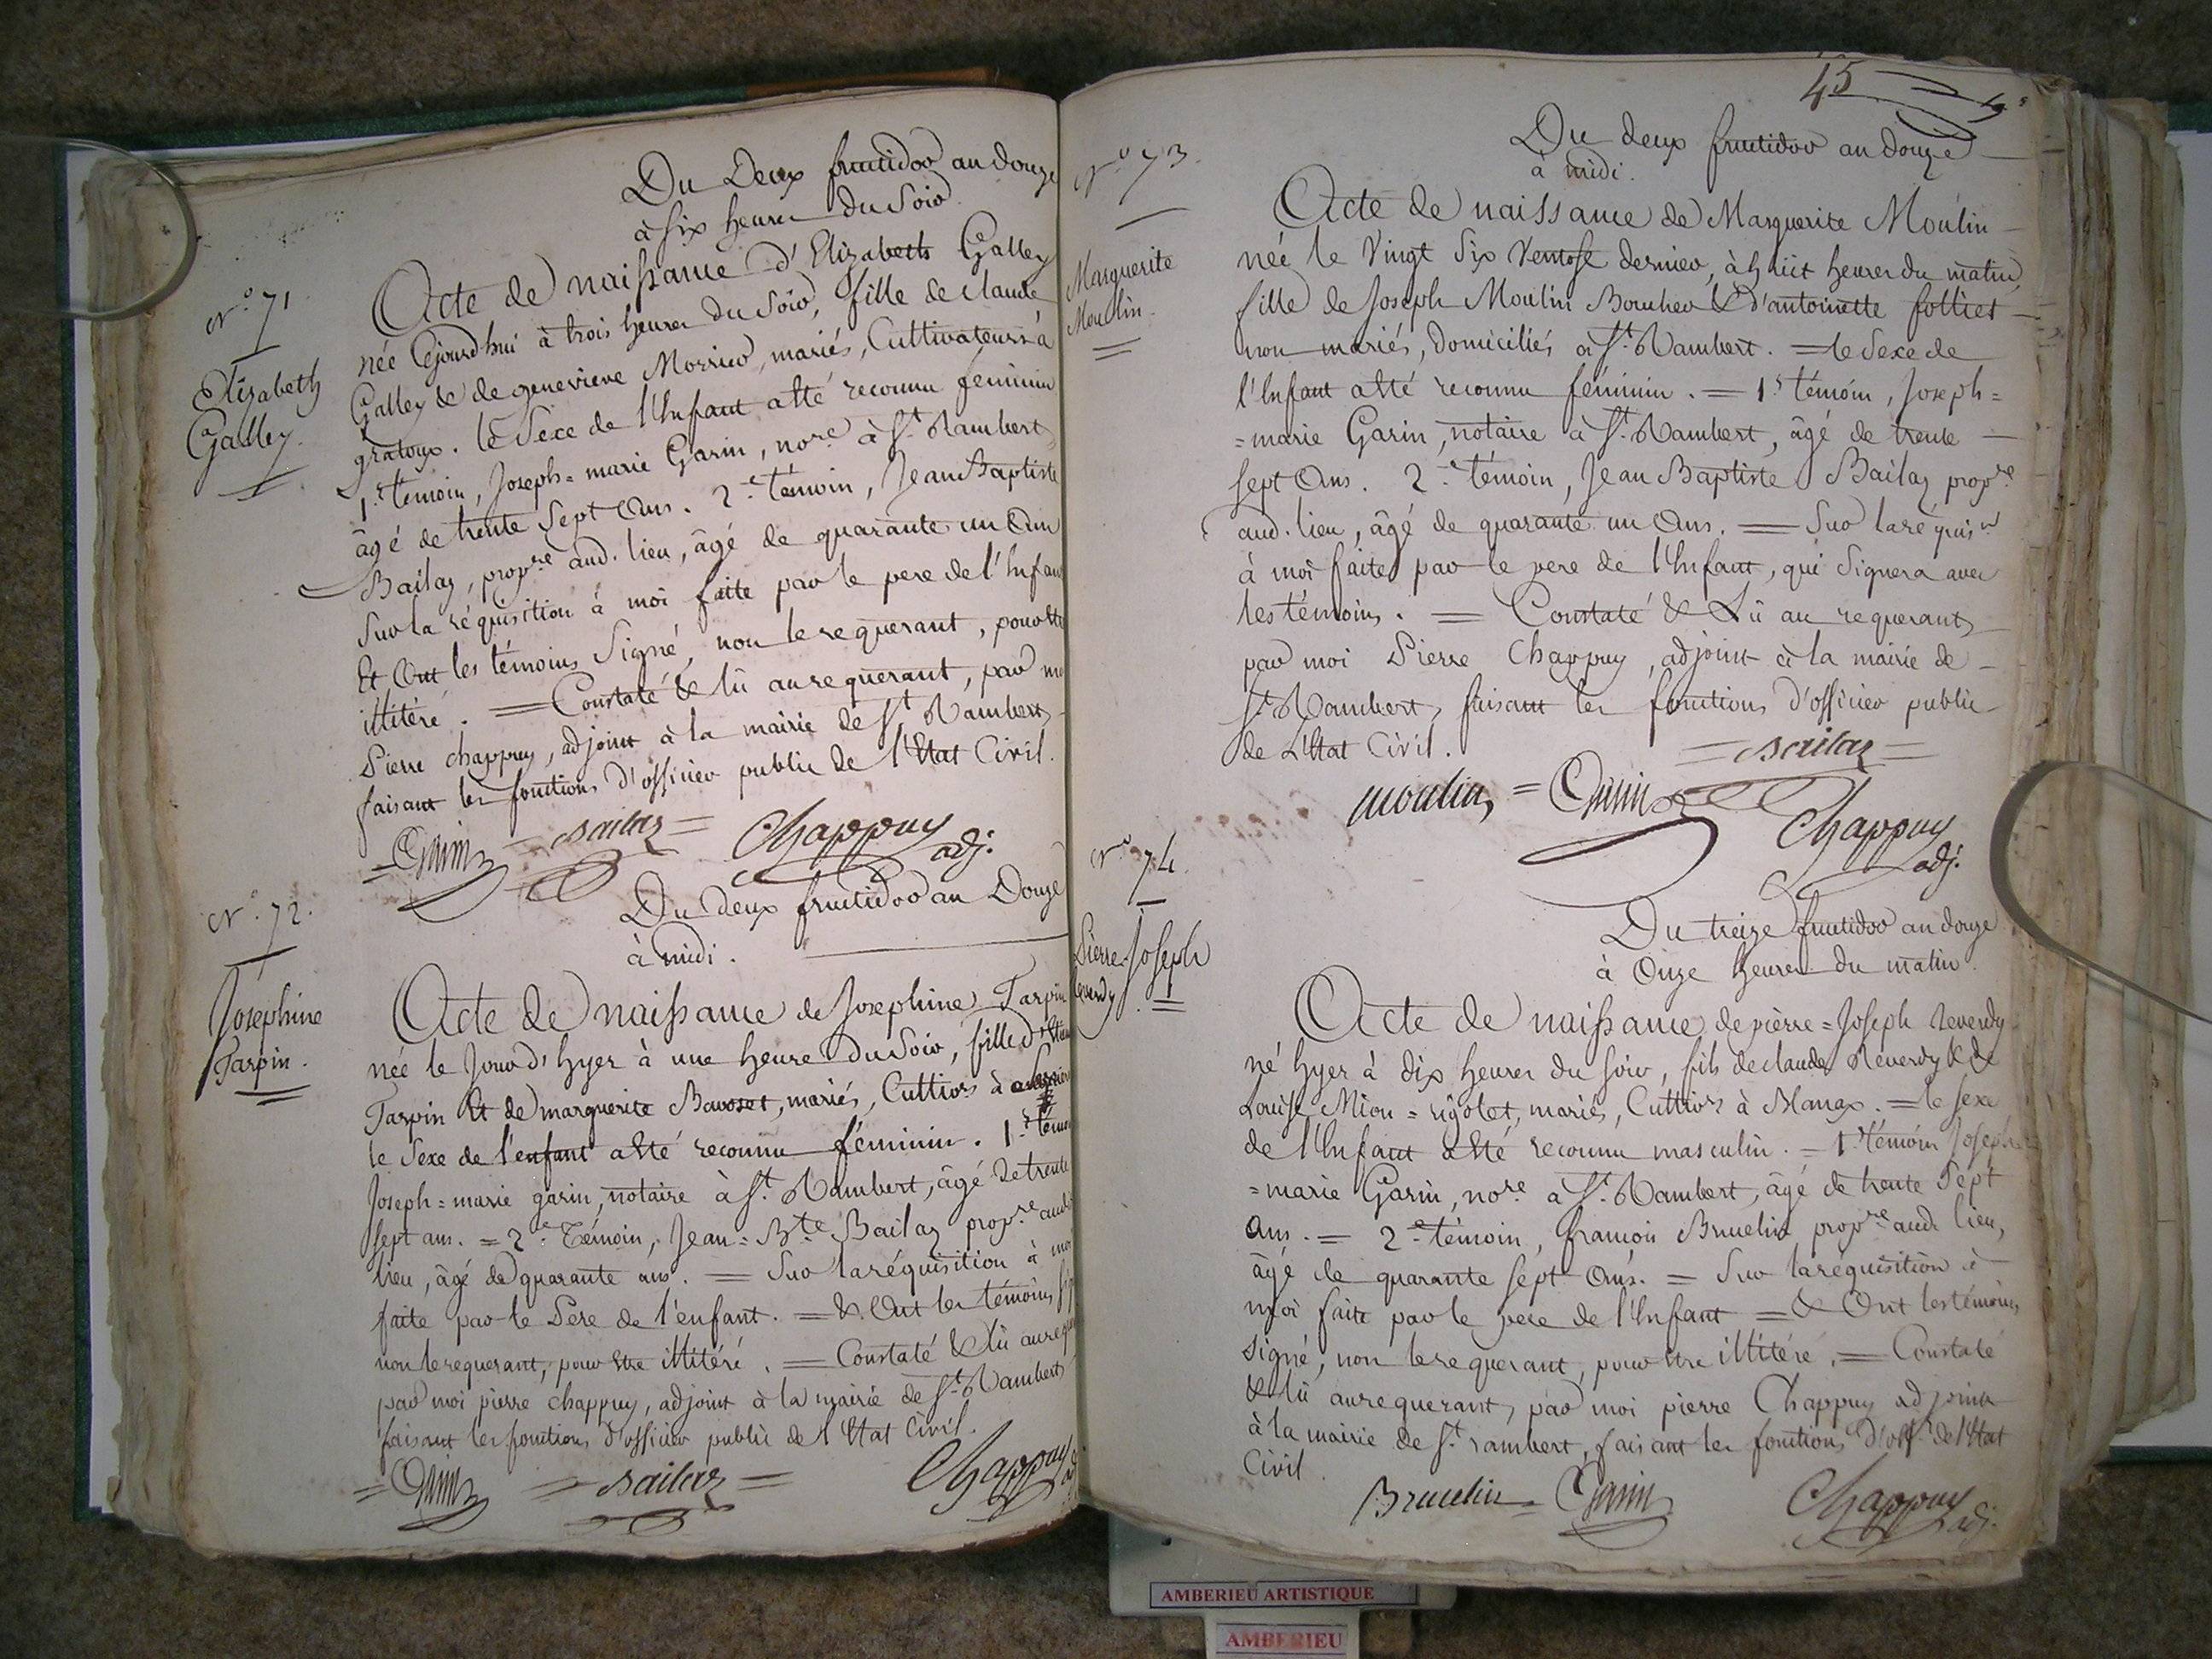 Du Deux fructidor an douze
à six heures du soir.
N.° 71
Elizabeth
Galley.
Acte de naissance d'Elizabeth Galley
née cejourd'hui à trois heures du soir, fille de claude
Galley & de genevieve Morrier, mariés, Cultivateurs à
gratoux. le sexe de l'Enfant a été reconnu feminin
1.r témoin, Joseph=marie Garin, no.re à S.t Rambert
âgé de trente sept ans. 2.e témoin, Jean Baptiste
Bailaz, prop.re aud. lieu, âgé de quarante un ans
sur la réquisition à moi faite par le pere de l'Enfant
Et Ont les témoins signé, non le requerant, pour être
illitéré. = Constaté & lû au requerant, par moi
Pierre chappuy, adjoint à la mairie de S.t Rambert
faisant les fonctions d'officier public de l'Etat Civil.
= Garin = Bailaz = Chappuy
adj.
N.° 72.
Josephine
Tarpin.
Du deux fructidor an Douze
à midi.
Acte de naissance de Josephine Tarpin
née le jour d'hyer à une heure du soir, fille d'
Tarpin Et de marguerite Bavoset, mariés, Cultiv.rs à
le sexe de l'enfant a été reconnu féminin. 1.r témoin
Joseph=marie garin, notaire à S.t Rambert, âgé de trente
sept ans. = 2.e Témoin, Jean=B.te Bailaz prop.re aud.
lieu, âgé de quarante ans. = Sur la réquisition à moi
faite par le Père de l'enfant. = & Ont les témoins
non le requerant, pour être illitéré. = Constaté & lû au
par moi pierre chappuy, adjoint à la mairie de S.t Rambert
faisant les fonctions d'officier public de l'Etat Civil.
= Garin = Bailaz = Chappuy
45
N.° 73.
Marguerite
Moulin.
Du deux fructidor an douze
à midi.
Acte de naissance de Marguerite Moulin
née le vingt six ventose dernier, à huit heures du matin,
fille de Joseph Moulin Boucher & d'antoinette folliet
non mariés, domiciliés à S.t Rambert. = le sexe de
l'Enfant a été reconnu féminin. = 1.r témoin, Joseph=
=marie Garin, notaire à S.t Rambert, âgé de trente
sept ans. 2.e témoin, Jean Baptiste Bailaz prop.re
aud. lieu, âgé de quarante un ans. = Sur la réquis.on
à moi faite par le pere de l'Enfant, qui signera avec
les témoins. = Constaté & Lû au requerant
par moi Pierre Chappuy, adjoint à la mairie de
S.t Rambert, faisant les fonctions d'officier public
de L'Etat Civil.
= Bailaz =
moulin = Garin
Chappuy
adj.
N.° 74.
Pierre-Joseph
Reverdy
Du treize fructidor an douze
à Onze heures du matin.
Acte de naissance de pierre=Joseph reverdy
né hyer à dix heures du soir, fils de claude Reverdy & de
Louise Mion=rigolet, mariés, Cultiv.rs à Blanax. = le sexe
de l'Enfant a été reconnu masculin. = 1.r témoin Joseph=
=marie Garin, no.re à S.t Rambert, âgé de trente sept
ans. = 2.e témoin, françois Bruelin, prop.re aud. lieu,
âgé de quarante sept ans. = Sur la réquisition à
moi faite par le pere de l'Enfant = & Ont les témoins
signé, non le requerant, pour être illitéré. = Constaté
& lû au requerant, par moi pierre Chappuy adjoint
à la mairie de S.t rambert, faisant les fonctions d'off. de l'Etat
Civil.
Bruelin = Garin Chappuy
adj.
AMBERIEU ARTISTIQUE
AMBERIEU